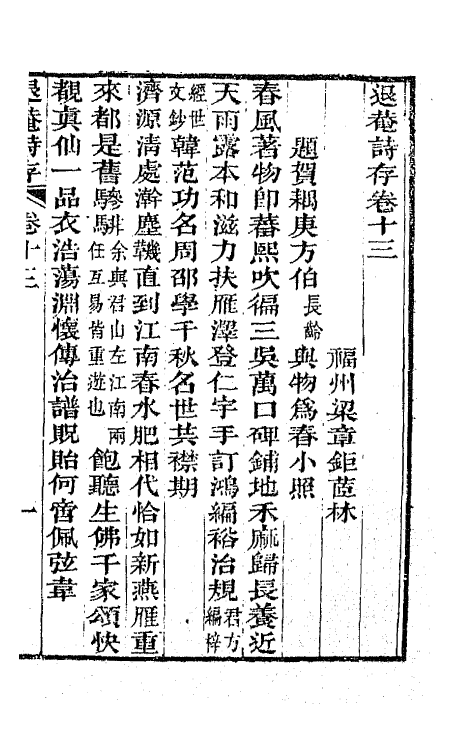 退菴詩存卷十三
福州梁章鉅茝林
題賀耦庚方伯長齡與物爲春小照
春風著物即蕃熙吹徧三吳萬口碑鋪地禾麻歸長養近
天雨露本和滋力扶雁澤登仁宇手訂鴻編裕治規君方編梓
經世文鈔韓范功名周邵學千秋名世共襟期
濟源清處澣塵鞿直到江南春水肥相代恰如新燕雁重
來都是舊驂騑余與君山左江南兩任互易皆重遊也飽聽生佛千家頌快
覩真仙一品衣浩蕩淵懷傳治譜貺貽何啻佩弦韋
退菴詩存
卷十三
一